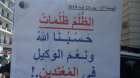 الظلم ظلمات
حسبنا الله
ونعم الوكيل
في المعتدين